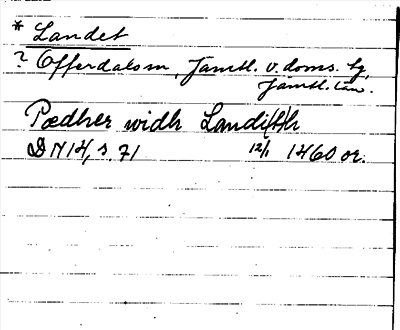 * Landet
? Offerdals sn, Jämtl. v. doms. tg,
Jämtl. län.
Pædher widh Landi(th)h
DN 14, s. 71 12/1 1460 or.